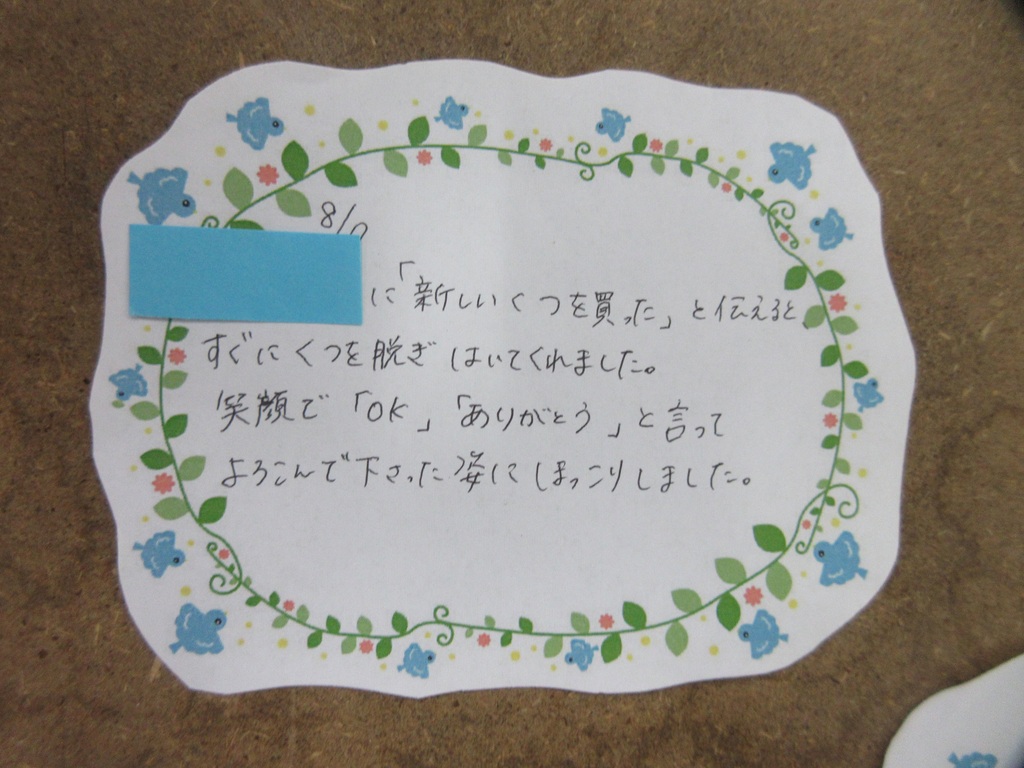 8/
に「新しいくつを買った」と伝えると、
すぐにくつを脱ぎはいてくれました。
笑顔で「OK」「ありがとう」と言って
よろこんで下さった姿にほっこりしました。